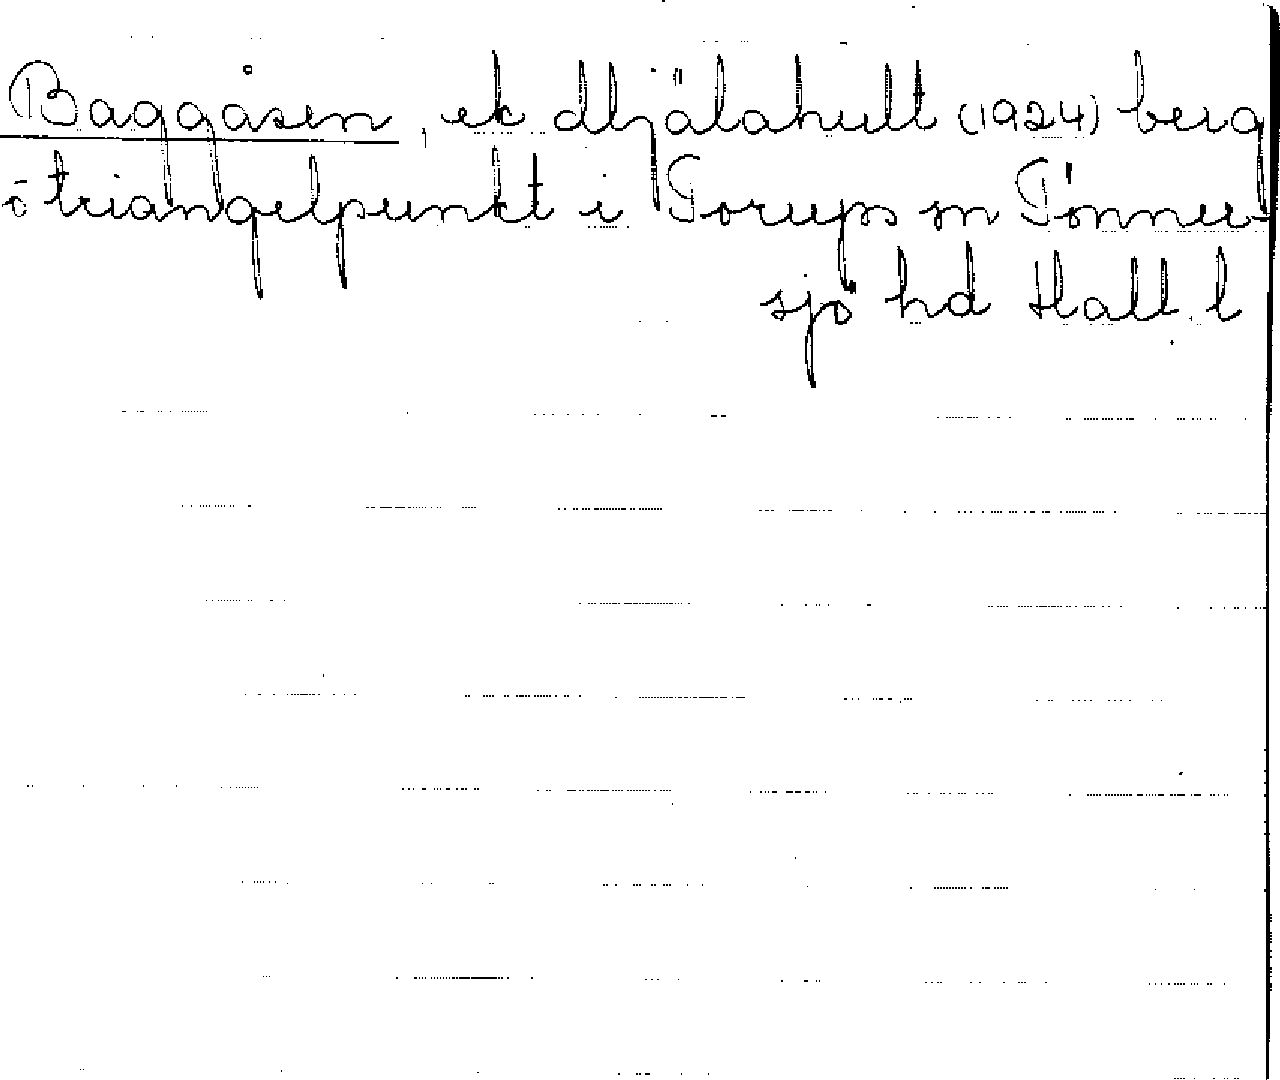 Baggåsen, ek Älhjälahult (1924) berg
o triangelpunkt i Torups sn Tönner-
sjö hd Hall. l